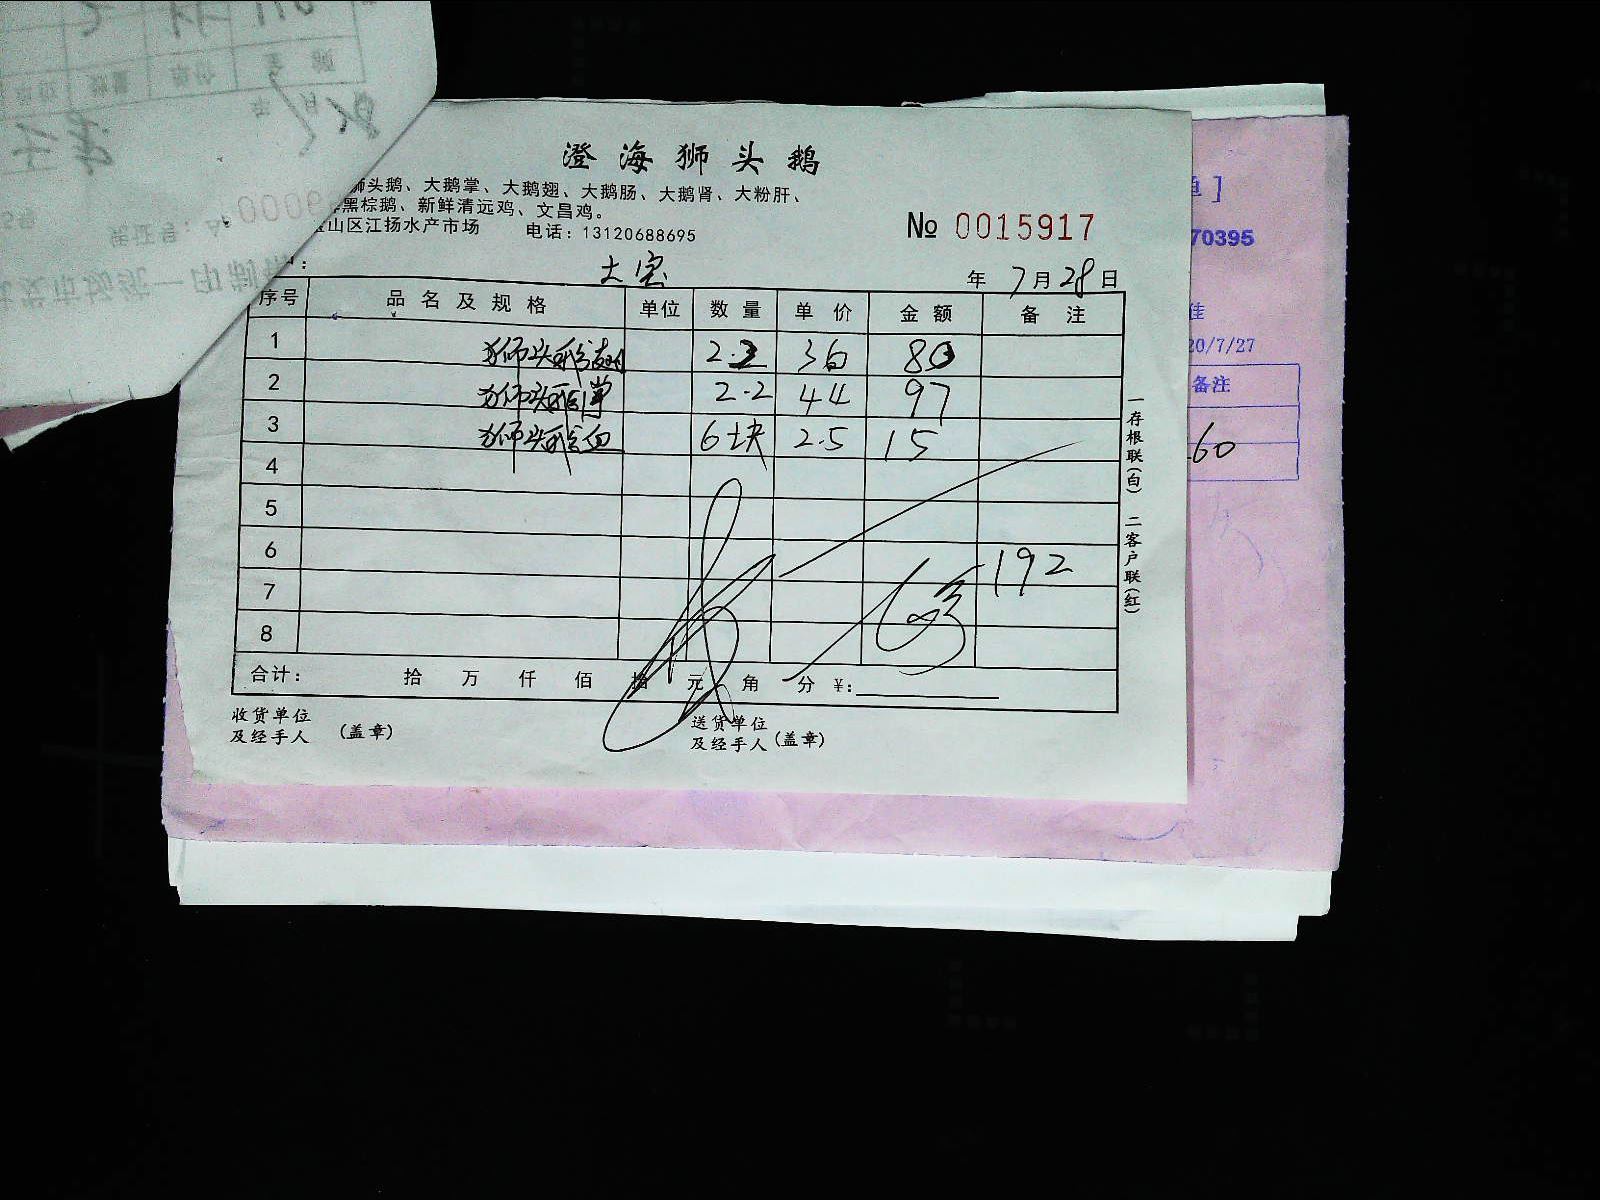 澄海狮头鹅
狮头鹅、大鹅掌、大鹅翅、大鹅肠、大鹅肾、大粉肝、
黑棕鹅、新鲜清远鸡、文昌鸡。
山区江扬水产市场 电话：13120688695
№ 0015917
大宝 年 7月28日
序号 品名及规格 单位 数量 单价 金额 备注
1 狮头鹅翅 2.2 36 80
2 狮头鹅掌 2.2 44 97
3 狮头鹅血 6块 2.5 15
4
5
6 192
7
8
合计： 拾 万 仟 佰 拾 元 角 分 ¥：
收货单位
及经手人 (盖章)
送货单位
及经手人 (盖章)
一存根联(白) 二客户联(红)
单]
70395
佳
20/7/27
备注
60